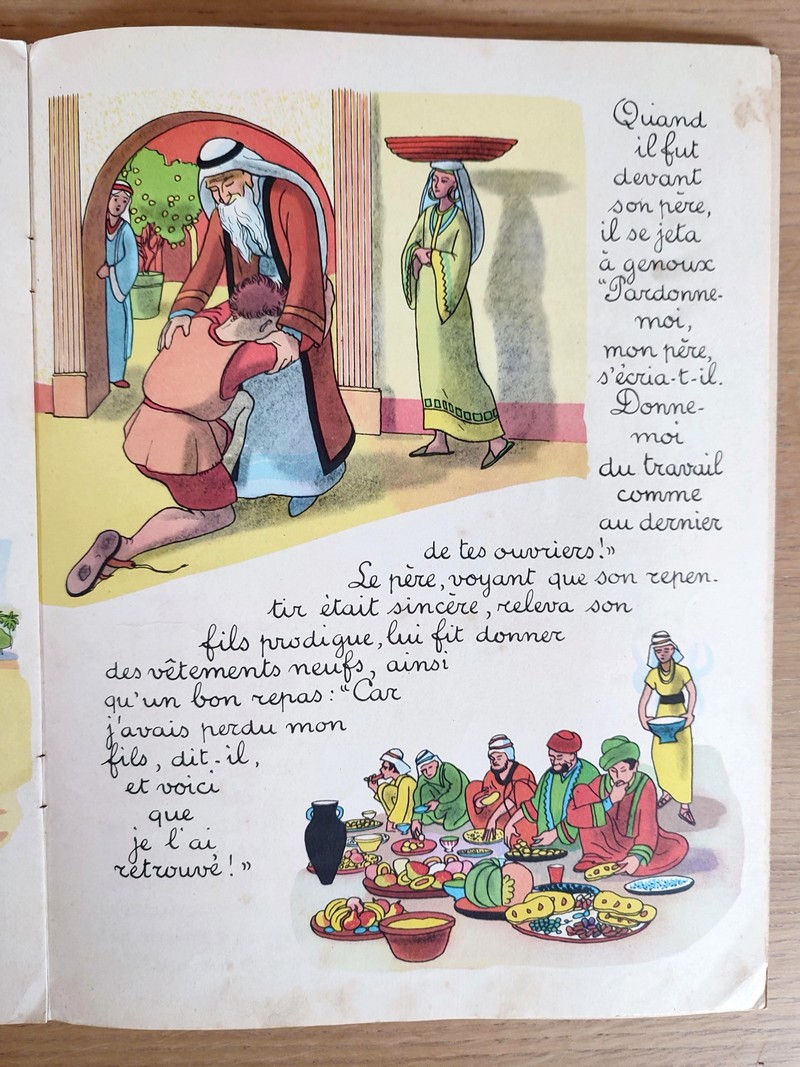 Quand
il fut
devant
son père,
il se jeta
à genoux
"Pardonne-
moi,
mon père,
s'écria-t-il.
Donne-
moi
du travail
comme
au dernier
de tes ouvriers!»
Le père, voyant que son repen-
tir était sincère, releva son
fils prodigue, lui fit donner
des vêtements neufs, ainsi
qu'un bon repas: "Car
j'avais perdu mon
fils, dit-il,
et voici
que
je l'ai
retrouvé!»